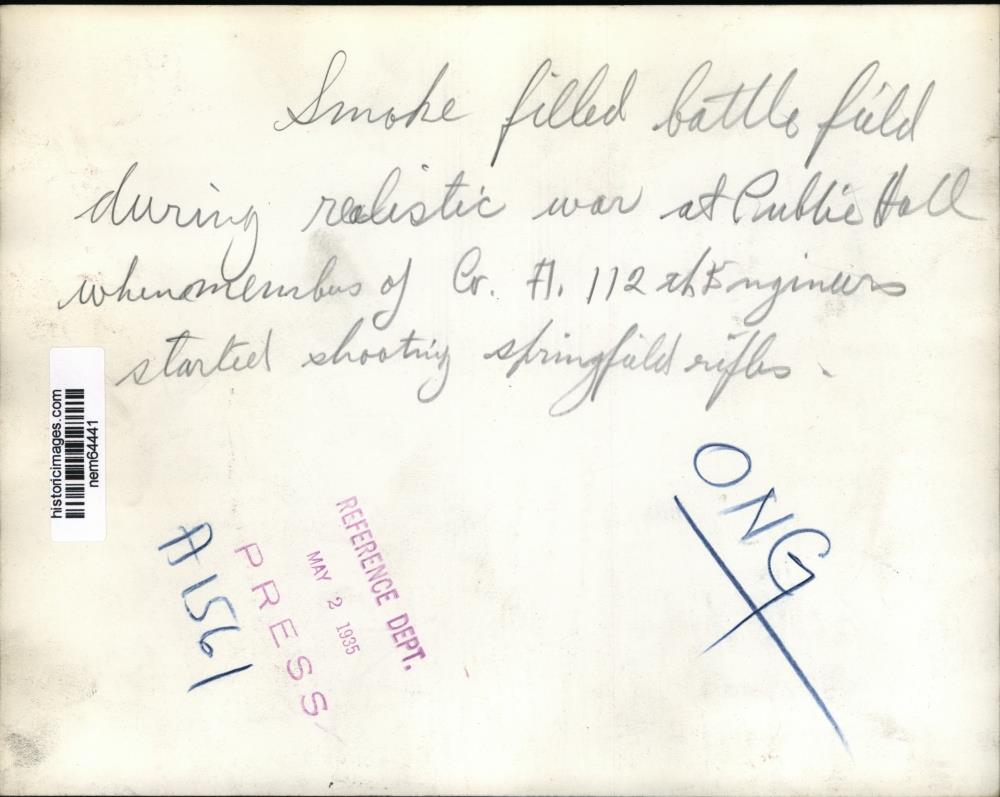 Smoke filled battle field
during realistic war at Public Hall
when members of Co. A. 112th Engineers
started shooting springfield rifles.
historicimages.com
nem64441
ONG
REFERENCE DEPT.
MAY 2 1935
PRESS
A1561